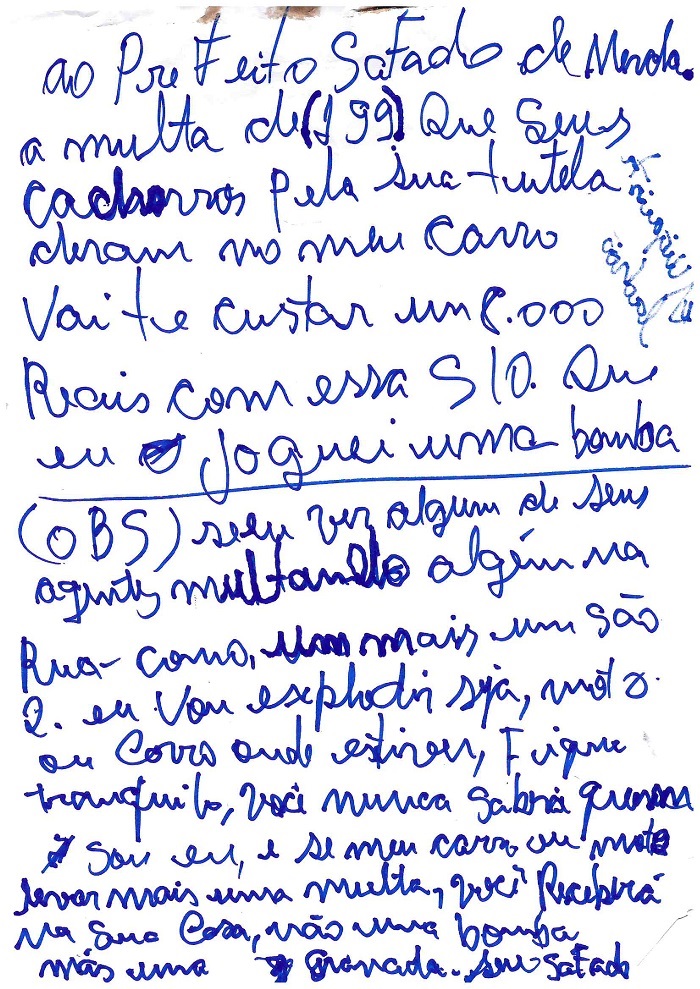 ao PreFeito SaFado de Merda.
a multa de (199) Que Seus
cachorros pela sua tutela
deram no meu carro
Vai te custar um 8.000
Reais com essa S10. Que
eu joguei uma bomba
(OBS) seeu ver algum de seus
agentes multando algém na
Rua - como, um mais um são
2. eu vou explodir seja, moto
ou Carro onde estiver, Fique
tranquilo, você nunca sabrá quem
sou eu, e se meu carro ou moto
levar mais uma multa, você Receberá
na sua Casa, não uma bomba
mas uma granada. seu safado